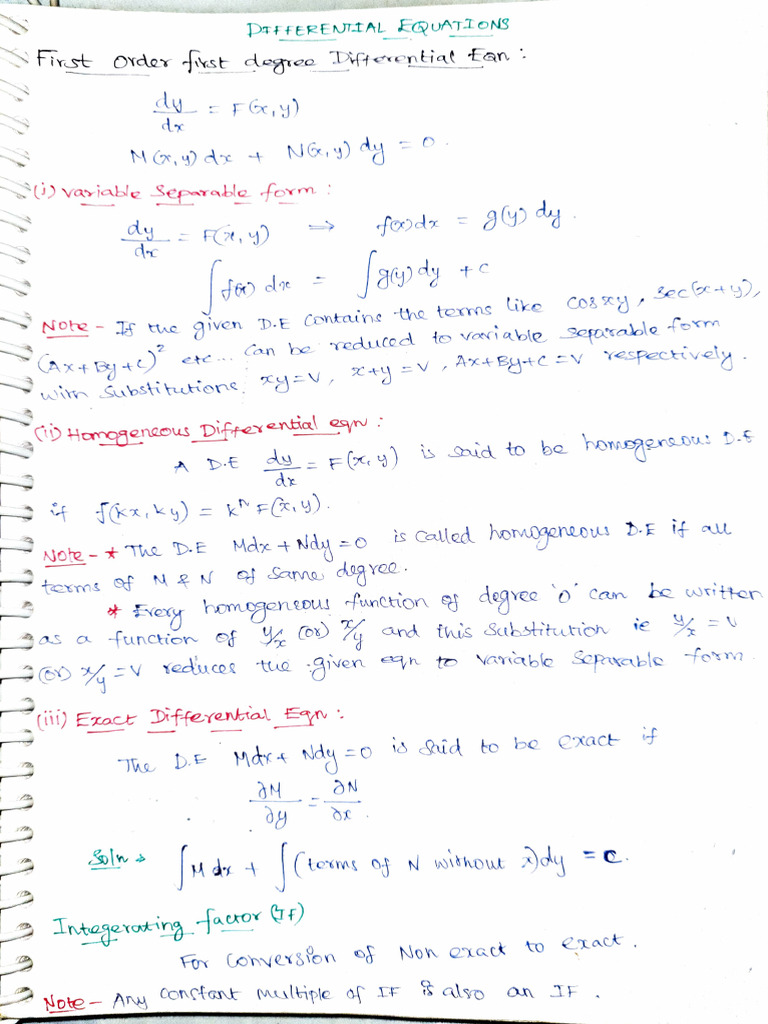 DIFFERENTIAL EQUATIONS
First order first degree Differential Eqn :
dy/dx = F(x,y)
M(x,y) dx + N(x,y) dy = 0.
(i) Variable Separable form :
dy/dx = F(x,y) ⇒ f(x) dx = g(y) dy.
∫f(x) dx = ∫g(y) dy + c
Note - If the given D.E contains the terms like cosxy, sec(x+y),
(Ax+By+C)² etc... can be reduced to variable separable form
with substitutions xy=V, x+y=V, Ax+By+C=V respectively.
(ii) Homogeneous Differential eqn :
A D.E dy/dx = F(x,y) is said to be homogeneous D.E
if f(kx,ky) = kⁿ F(x,y).
Note - * The D.E Mdx + Ndy = 0 is called homogeneous D.E if all
terms of M & N of same degree.
* Every homogeneous function of degree 'o' can be written
as a function of y/x (or) x/y and this substitution ie y/x = V
(or) x/y = V reduces the given eqn to variable separable form.
(iii) Exact Differential Eqn :
The D.E Mdx + Ndy = 0 is said to be exact if
∂M/∂y = ∂N/∂x.
Soln ⇒ ∫M dx + ∫(terms of N without x)dy = C.
Integerating factor (If)
For conversion of Non exact to exact.
Note - Any constant multiple of IF is also an IF.